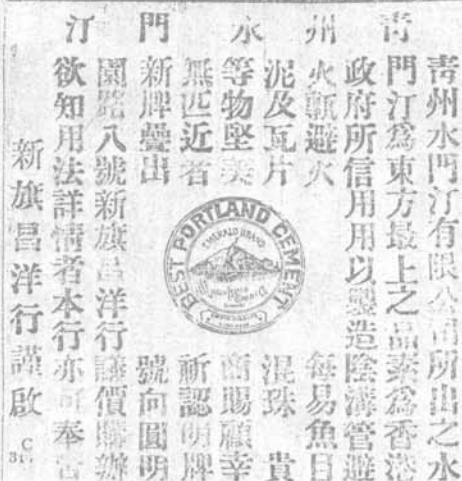 青州水門汀
青州水門汀有限公司所出之水
門汀爲東方最上之品素爲香港
政府所信用用以製造陰溝管避
火甎避火
泥及瓦片
等物堅美
無匹近者
新牌疊出
每易魚目
混珠 貴
商賜顧幸
祈認明牌
號向圓明
園路八號新旗昌洋行議價購辦
欲知用法詳情者本行亦可奉告
新旗昌洋行謹啟
C
BEST PORTLAND CEMENT
EMERALD BRAND